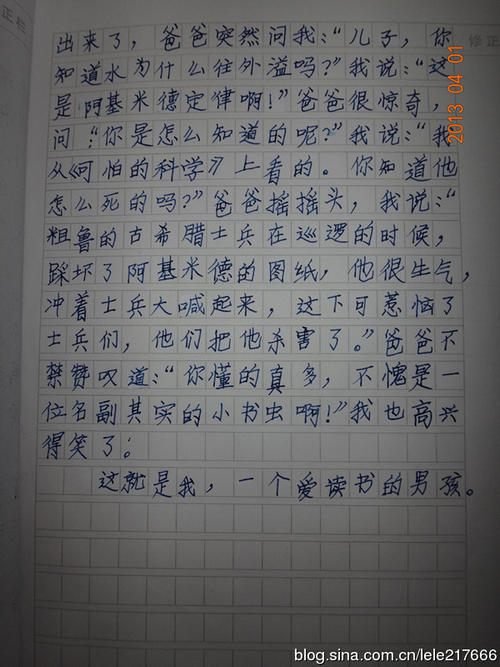 出来了，爸爸突然问我：“儿子，你
知道水为什么往外溢吗？”我说：“这
是阿基米德定律啊！”爸爸很惊奇，
问：“你是怎么知道的呢？”我说：“我
从《可怕的科学》上看的。你知道他
怎么死的吗？”爸爸摇摇头，我说：“
粗鲁的古希腊士兵在巡逻的时候，
踩坏了阿基米德的图纸，他很生气，
冲着士兵大喊起来，这下可惹恼了
士兵们，他们把他杀害了。”爸爸不
禁赞叹道：“你懂的真多，不愧是一
位名副其实的小书虫啊！”我也高兴
得笑了。
这就是我，一个爱读书的男孩。
2013 04 01
修正
正栏
blog.sina.com.cn/lele217666